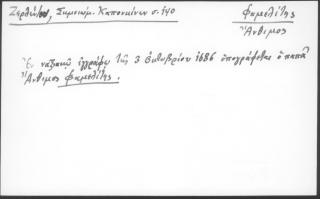 Ζερλέντου, Σημειώμ. Καπουκίνων σ. 140
Φαμελίτης
Ἄνθιμος
Ἐν ναξιακῷ ἐγγράφῳ τῆς 3 ὀκτωβρίου 1686 ὑπογράφεται ὁ παπᾶ
Ἄνθιμος Φαμελίτης.